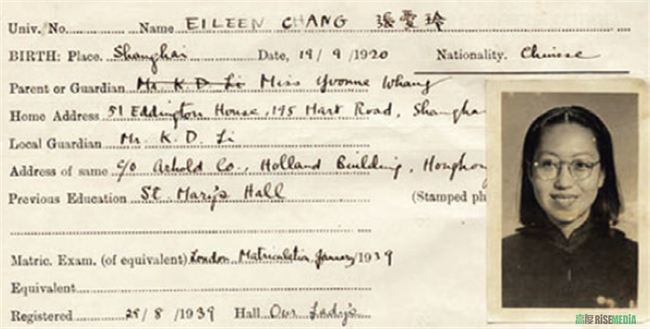 Univ. No. Name EILEEN CHANG 張愛玲
BIRTH: Place. Shanghai Date, 19/9/1920 Nationality. Chinese
Parent or Guardian Mr. K. D. Li Miss Yvonne Whang
Home Address 51 Eddington House, 195 Hart Road, Shangha
Local Guardian Mr. K. D. Li
Address of same c/o Arhold Co., Holland Building, Hongkong
Previous Education St. Mary's Hall (Stamped ph
Matric. Exam. (of equivalent) London Matriculation, January 1939
Equivalent
Registered 29/8/1939 Hall Our Lady's
RISEMEDIA